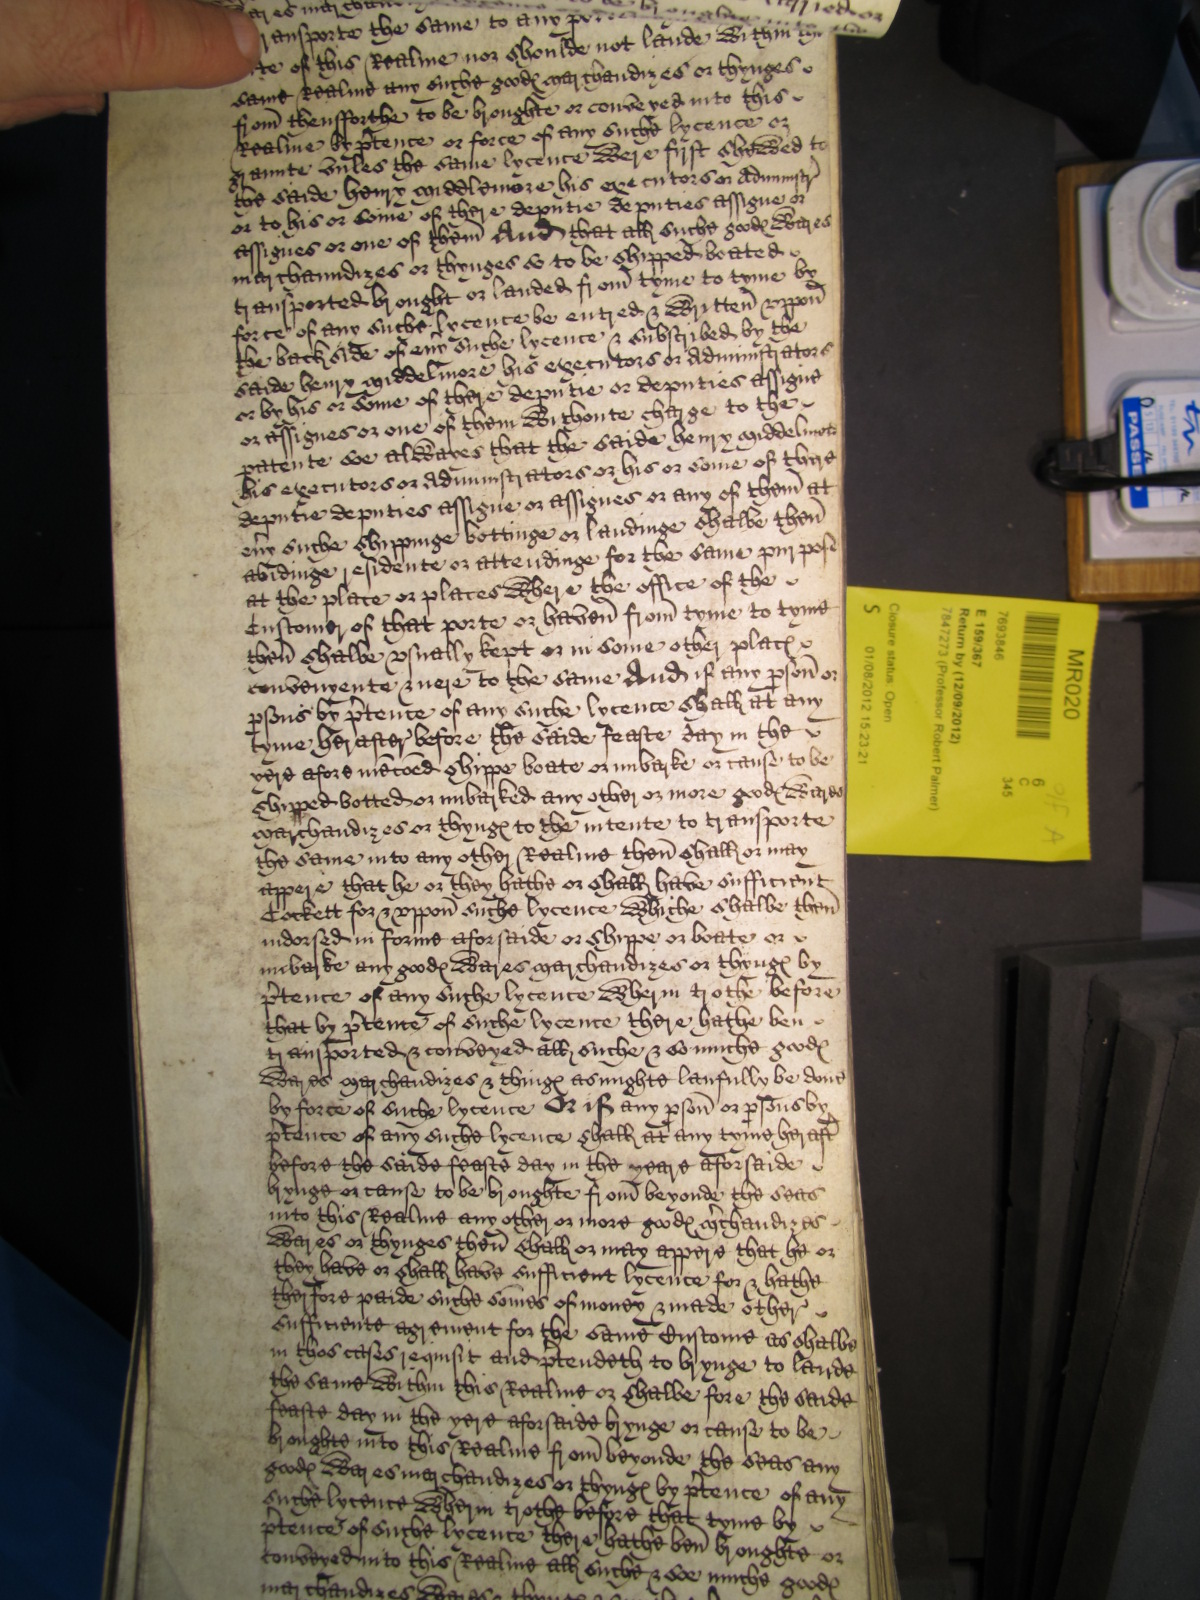 transporte the same to any
of this Realme nor shoulde not lande within
same Realme any suche goodę marchandizes or thynges
from thensforthe to be broughte or conveyed into this
Realme by p̄tence or force of any suche lycence or
graunte vnles the same lycence were first shewed to
the saide henry middlemore his executors or administr̄
or to his or some of there deputie deputies assigne or
assignes or one of them And that all suche goodę wares
marchaundizes or thynges so to be shipped boated
transported brought or landed from tyme to tyme by
force of any suche lycence be entred & written vppon
the backside of eny suche lycence & subscribed by the
saide henry middelmore his executors or administrators
or by his or some of there deputie or deputies assigne
or assignes or one of them withoute charge to the
patente so alwayes that the saide henry middelmore
his executors or administrators or his or some of there
deputie deputies assigne or assignes or any of them at
eny suche shippinge bottinge or landinge shalbe then
abidinge residente or attendinge for the same purpose
at the place or places where the office of the
Customer of that porte or haven from tyme to tyme
then shalbe vsually kept or in some other place
convenyente & nere to the same And if any p̱son or
p̱sons by p̄tence of any suche lycence shall at any
tyme herafter before the saide feaste day in the
yere afore menc̄oed shippe boate or imbarke or cause to be
shipped botted or imbarked any other or more goodę wares
marchandizes or thyngę to the intente to transporte
the same into any other Realme then shall or may
appere that he or they hathe or shall have sufficient
Cockett for & vppon suche lycence whiche shalbe then
indorsed in forme aforsaide or shippe or boate or
imbarke any goodę wares marchandizes or thyngę by
p̄tence of any suche lycence wherin trothe before
that by p̄tence of suche lycence there hathe ben
transported & conveyed all suche & so muche goodę
wares marchandizes & thingę as mighte laufully be done
by force of suche lycence Or if any p̱son or p̱sons by
p̄tence of any suche lycence shall at any tyme heraft̄
before the saide feaste day in the yeare aforsaide
brynge or cause to be broughte from beyonde the seas
into this Realme any other or more goodę m̄chandizes
wares or thynges then shall or may appere that he or
they have or shall have sufficient lycence for & hathe
therfore paide suche som̄es of money & made other
sufficiente agrement for the same Custome as shalbe
in thos cases requisit and p̄tendeth to brynge to lande
the same within this Realme or shalbe fore the saide
feaste day in the yere aforsaide brynge or cause to be
broughte into this Realme from beyonde the seas any
goodę wares marchandizes or thyngę by p̄tence of any
suche lycence wherin trothe before that tyme by
p̄tence of suche lycence there hathe ben broughte or
conveyed into this Realme all suche & soe muche goodę
marchandizes wares
MR020
6
C
345
7693846
E 159/367
Return by (12/09/2012)
7847273 (Professor Robert Palmer)
Closure status: Open
S 01/08/2012 15:23:21
off A
PASSED